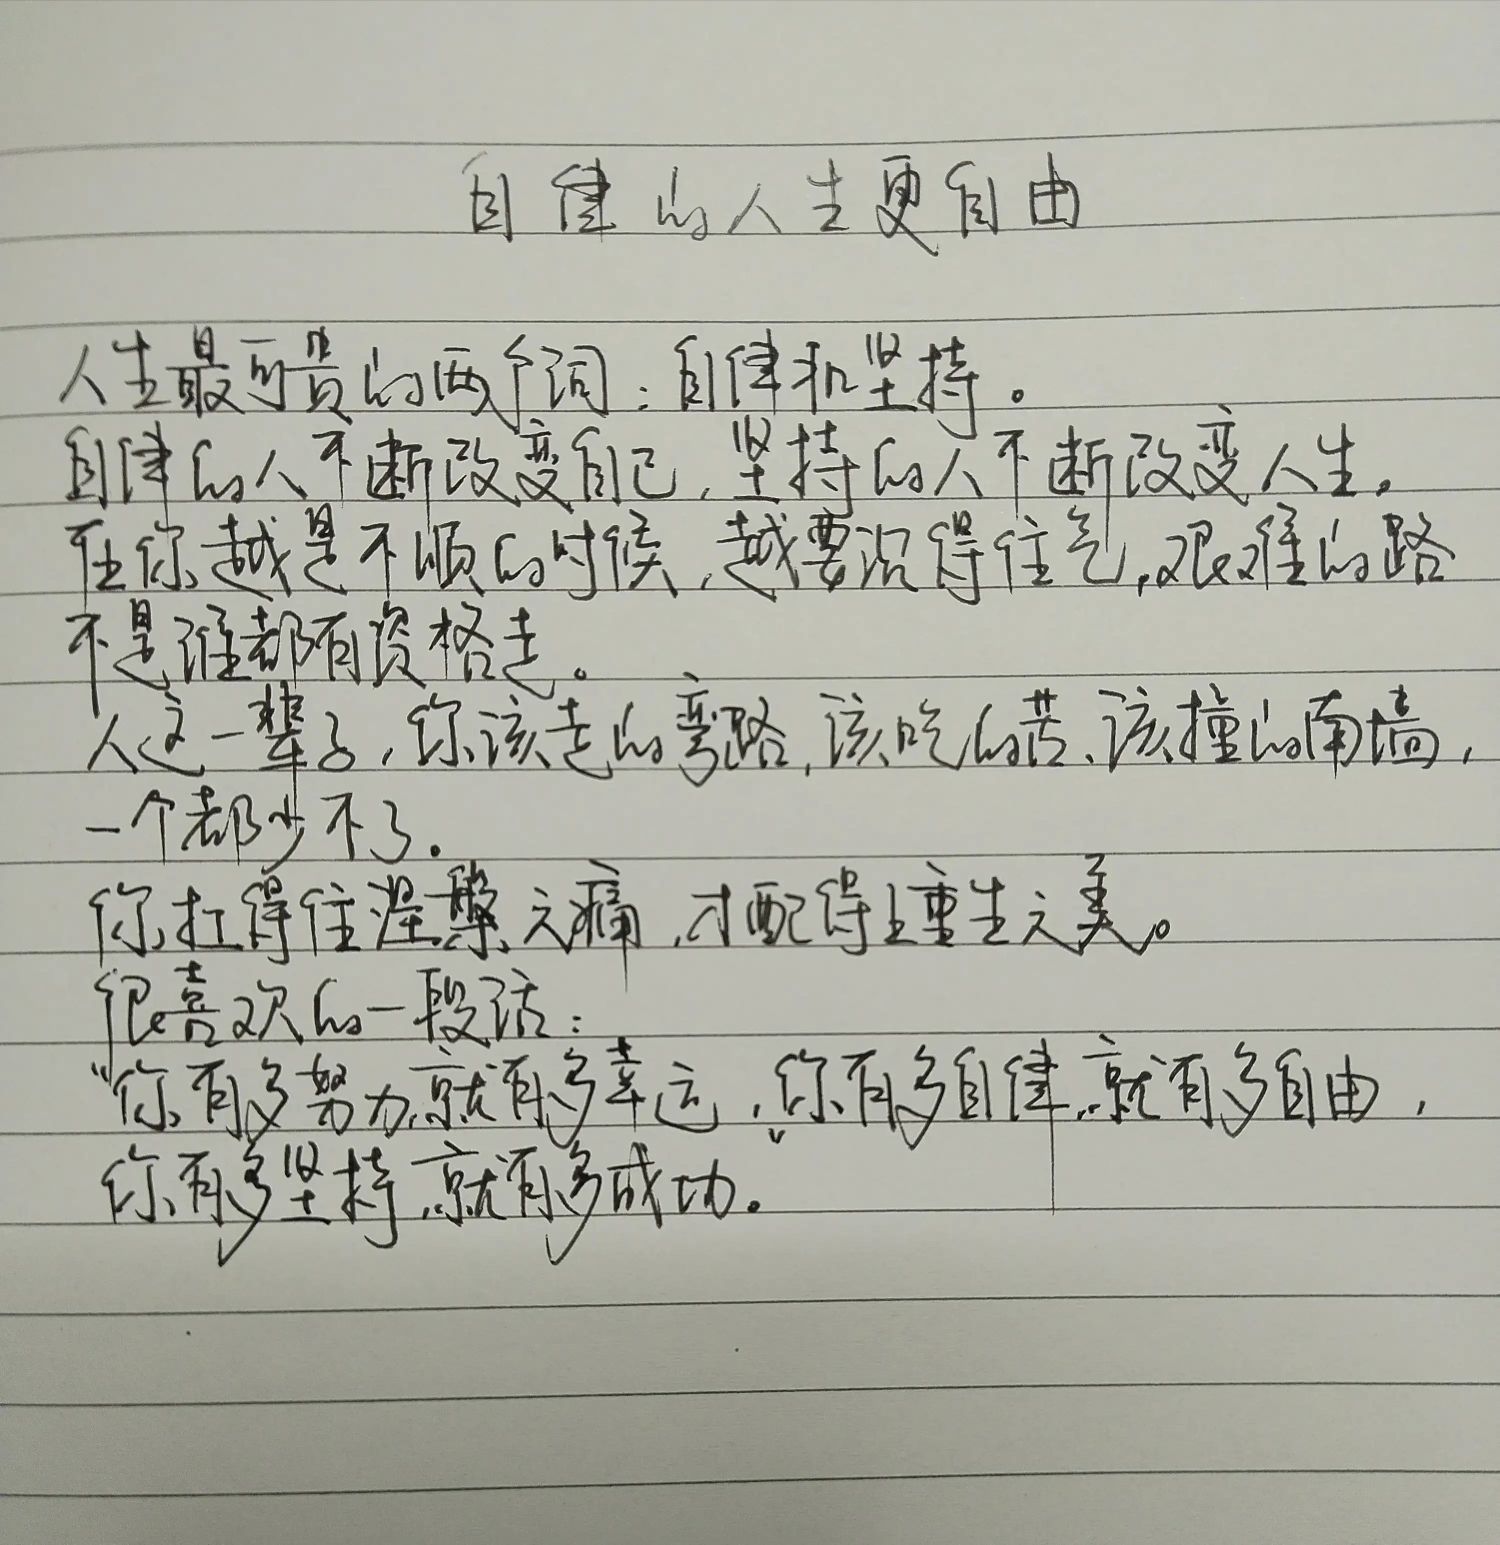 自律的人生更自由
人生最可贵的两个词：自律和坚持。
自律的人不断改变自己，坚持的人不断改变人生。
在你越是不顺的时候，越要沉得住气，艰难的路
不是谁都有资格走。
人这一辈子，你该走的弯路，该吃的苦、该撞的南墙，
一个都少不了。
你扛得住涅槃之痛，才配得上重生之美。
很喜欢的一段话：
“你有多努力，就有多幸运，你有多自律，就有多自由，
你有多坚持，就有多成功。